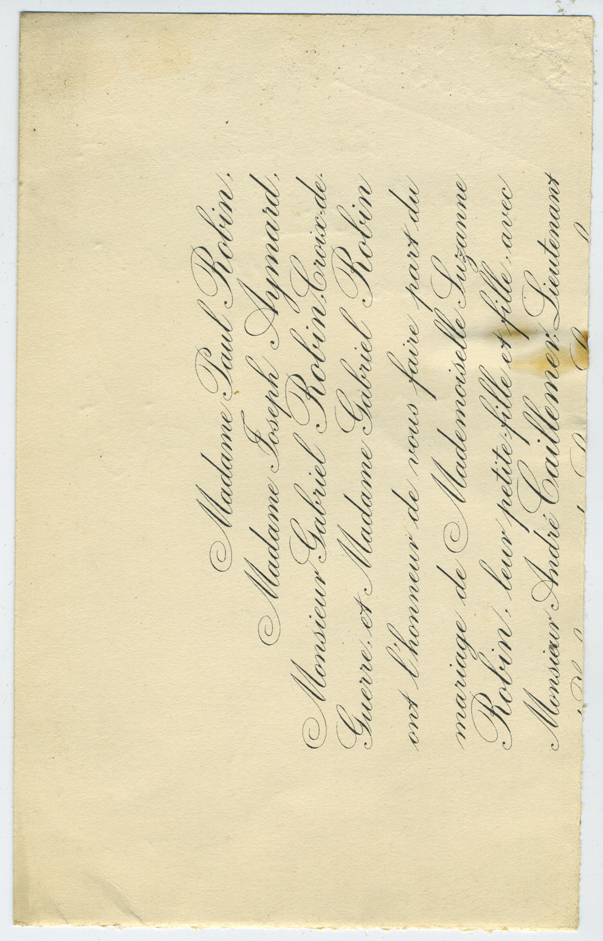 Madame Paul Robin,
Madame Joseph Aymard,
Monsieur Gabriel Robin, Croix de
Guerre, et Madame Gabriel Robin
ont l'honneur de vous faire part du
mariage de Mademoiselle Suzanne
Robin, leur petite-fille et fille, avec
Monsieur André Caillemer, Lieutenant